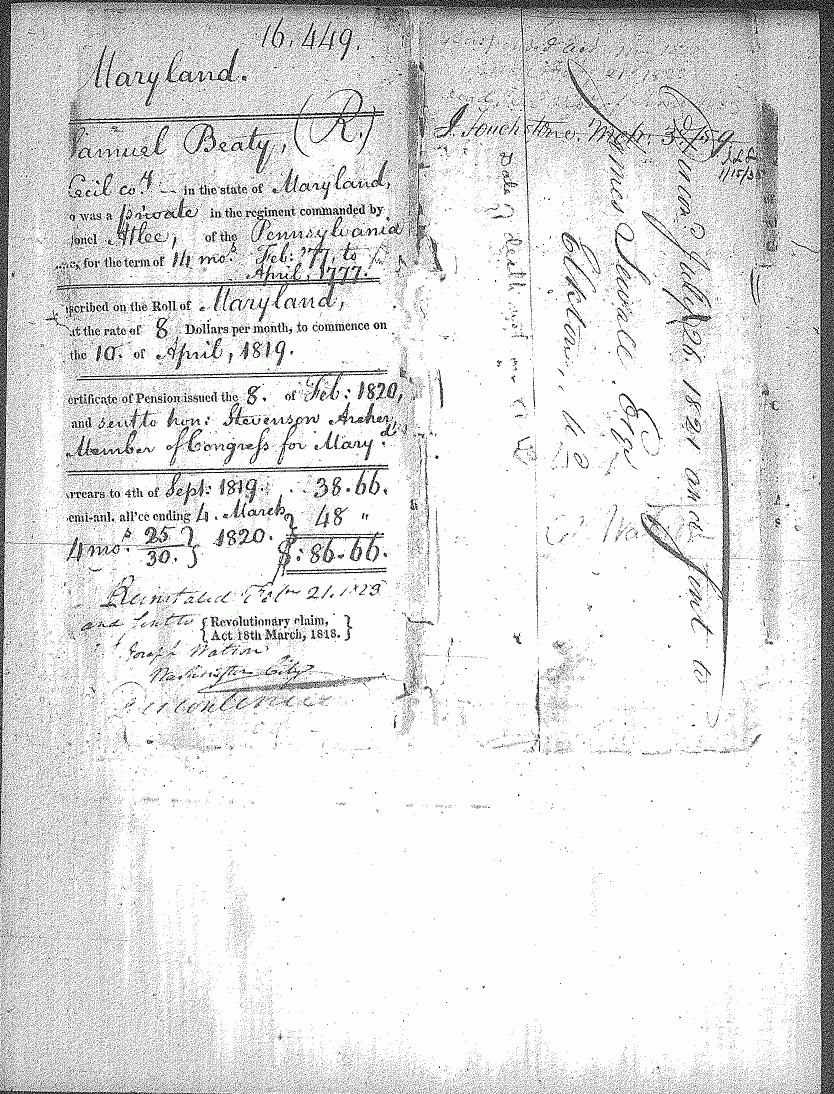 16.449.
Maryland.
Samuel Beaty, (R.)
Cecil coy. — in the state of Maryland,
o was a private in the regiment commanded by
lonel Atlee, of the Pennsylvania
for the term of 14 mos. Feb: '77, to
April, 1777.
scribed on the Roll of Maryland,
at the rate of 8 Dollars per month, to commence on
the 10. of April, 1819.
ertificate of Pension issued the 8. of Feb: 1820,
and sent to hon: Stevenson Archer,
Member of Congress for Maryd.
rrears to 4th of Sept: 1819. 38.66.
emi-anl. all'ce ending 4. March, 48 "
4 mos. 25/30. } 1820. $:86.66.
Reinstated Feb 21. 1823
and sent to { Revolutionary claim, }
{ Act 18th March, 1818. }
Joseph Watson
Washington City
Discontinued
J. Touchstone. Mch. 3rd
1/15/3
Date of death not
Elkton,
James Sewall Esqr
July 26. 1821 and sent to